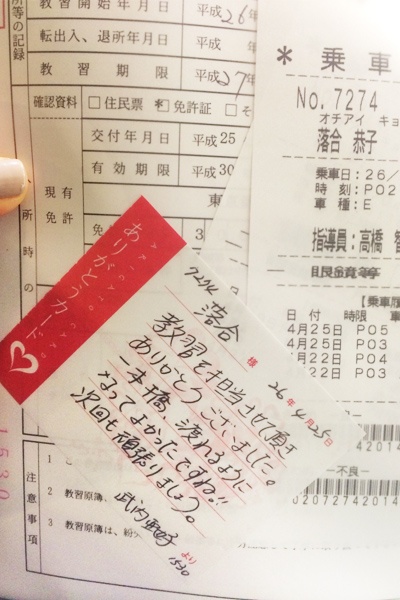 所等の記録
教習開始年月日 平成26年
転出入、退所年月日 平成 年
教習期限 平成27年
確認資料 □住民票 免許証 □そ
交付年月日 平成25
有効期限 平成30
現有免許
所時の
*乗車
No.7274
オチアイ キョ
落合 恭子
乗車日:26/
時 刻:P02
車 種:E
指導員:高橋
【乗車履
日付 時限
4月25日 P05
4月25日 P03
4月22日 P04
4月22日 P03
-不良-
0207274020120
ありがとうカード
7274 落合 様
26年4月25日
教習を担当させて頂き
ありがとうございました。
一本橋、渡れるように
なってよかったですね!!
次回も頑張りましょう。
より
1530
1530
注意事項
1
2 教習原簿、
3 教習原簿は、紛